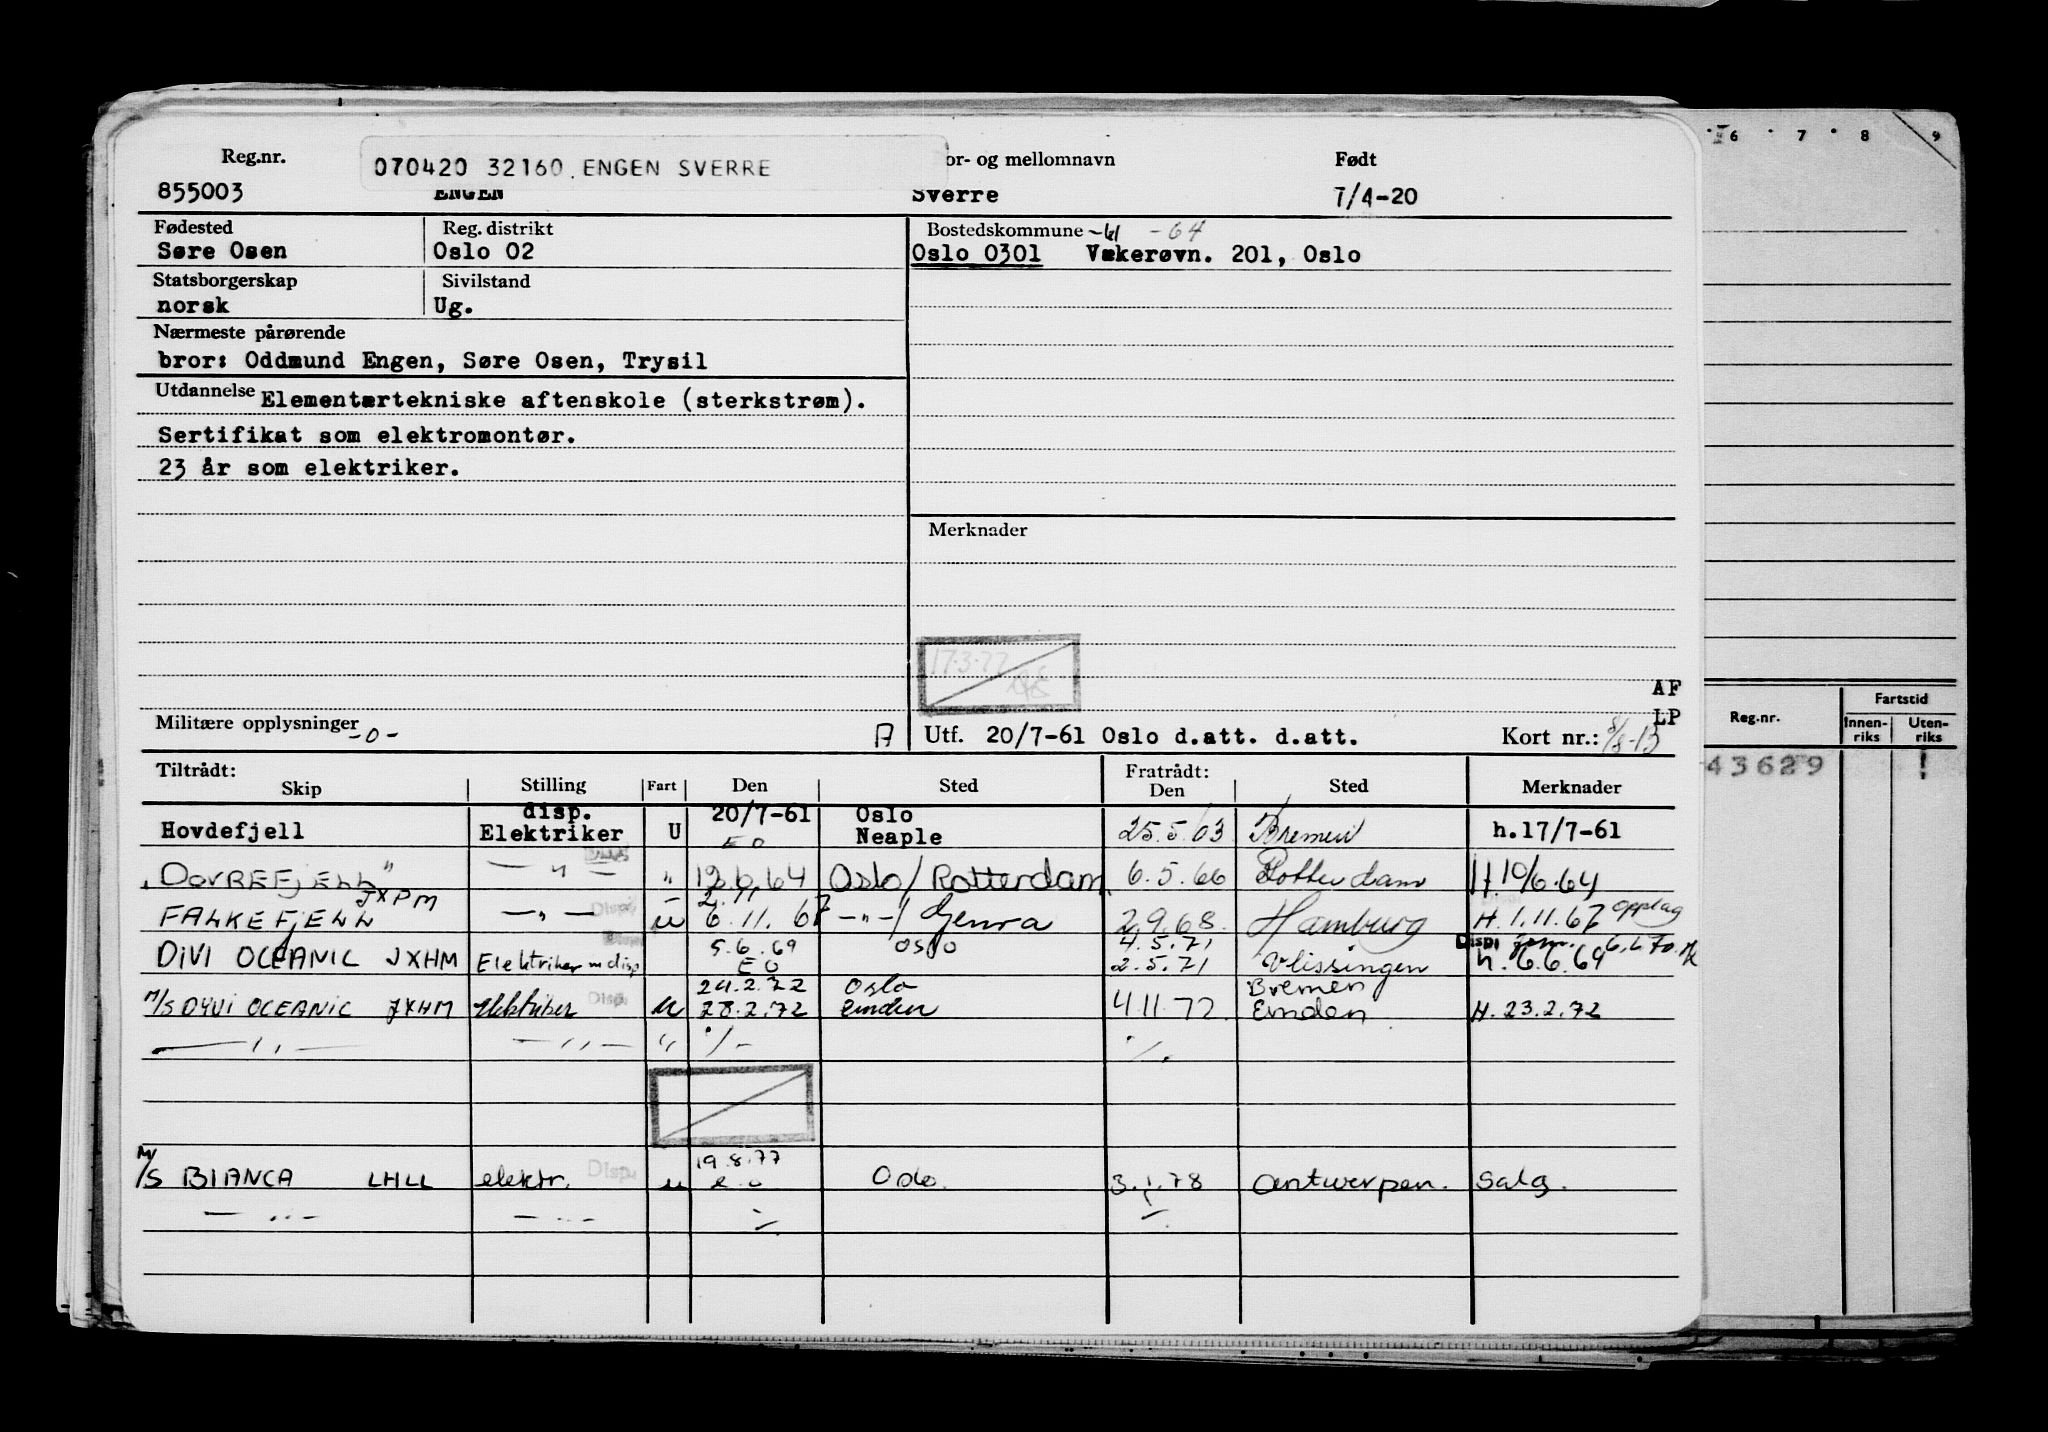 6 · 7 · 8 9
Reg.nr. 070420 32160 ENGEN SVERRE or- og mellomnavn Født
855003 ENGEN Sverre 7/4-20
Fødested Reg. distrikt Bostedskommune -61 -64
Søre Osen Oslo 02 Oslo 0301 Vækerøvn. 201, Oslo
Statsborgerskap Sivilstand
norsk Ug.
Nærmeste pårørende
bror: Oddmund Engen, Søre Osen, Trysil
Utdannelse Elementærtekniske aftenskole (sterkstrøm).
Sertifikat som elektromontør.
23 år som elektriker.
Merknader
17.3.77
AF
LP
Militære opplysninger -o- A Utf. 20/7-61 Oslo d.att. d.att. Kort nr.: 8/8-13
Reg.nr. Fartstid
Innen-riks Uten-riks
43629 1
Tiltrådt: Fratrådt:
Skip Stilling Fart Den Sted Den Sted Merknader
disp. 20/7-61 Oslo
Hovdefjell Elektriker U EO Neaple 25.5.63 Bremen h.17/7-61
DOVREFJELL " — " — " 12.6.64 Oslo/Rotterdam 6.5.66 Rotterdam H.10/6.64
JXPM 2.11
FALKEFJELL — " — Disp. u 6.11.67 -"-/Genova 2.9.68 Hamburg H. 1.11.67 opplag
5.6.69 Oslo 4.5.71 Disp.
DIVI OCEANIC JXHM Elektriker m disp EO 2.5.71 Vlissingen h. 6.6.69
24.2.72 Oslo Bremen
M/S DYVI OCEANIC JXHM Elektriker Disp. u 28.2.72 Emden 4.11.72 Emden H. 23.2.72
— " — — " — " ·/- ·/.
19.8.77
M/S BIANCA LHLL elektr. Disp. u e.o Oslo. 3.1.78 Antwerpen. Salg.
— " — — " —